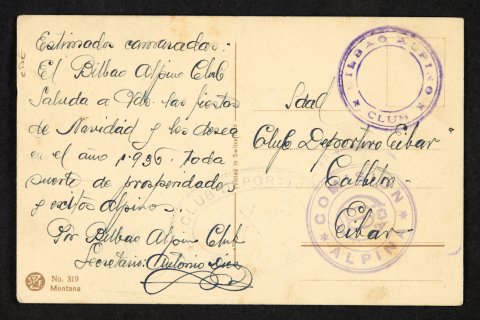 Estimados camaradas:
El Bilbao Alpino Club
Saluda a Vds. las fiestas
de Navidad y les desea
en el año 1936 toda
suerte de prosperidades
y exitos alpinos.
Por Bilbao Alpino Club
Secretario: Antonio
No. 319
Montana
Printed in Switzerland
BILBAO ALPINO
CLUB
Sdad
Club Deportivo Eibar
Eibar
CLUB DEPORTI
COMISION
ALPIN